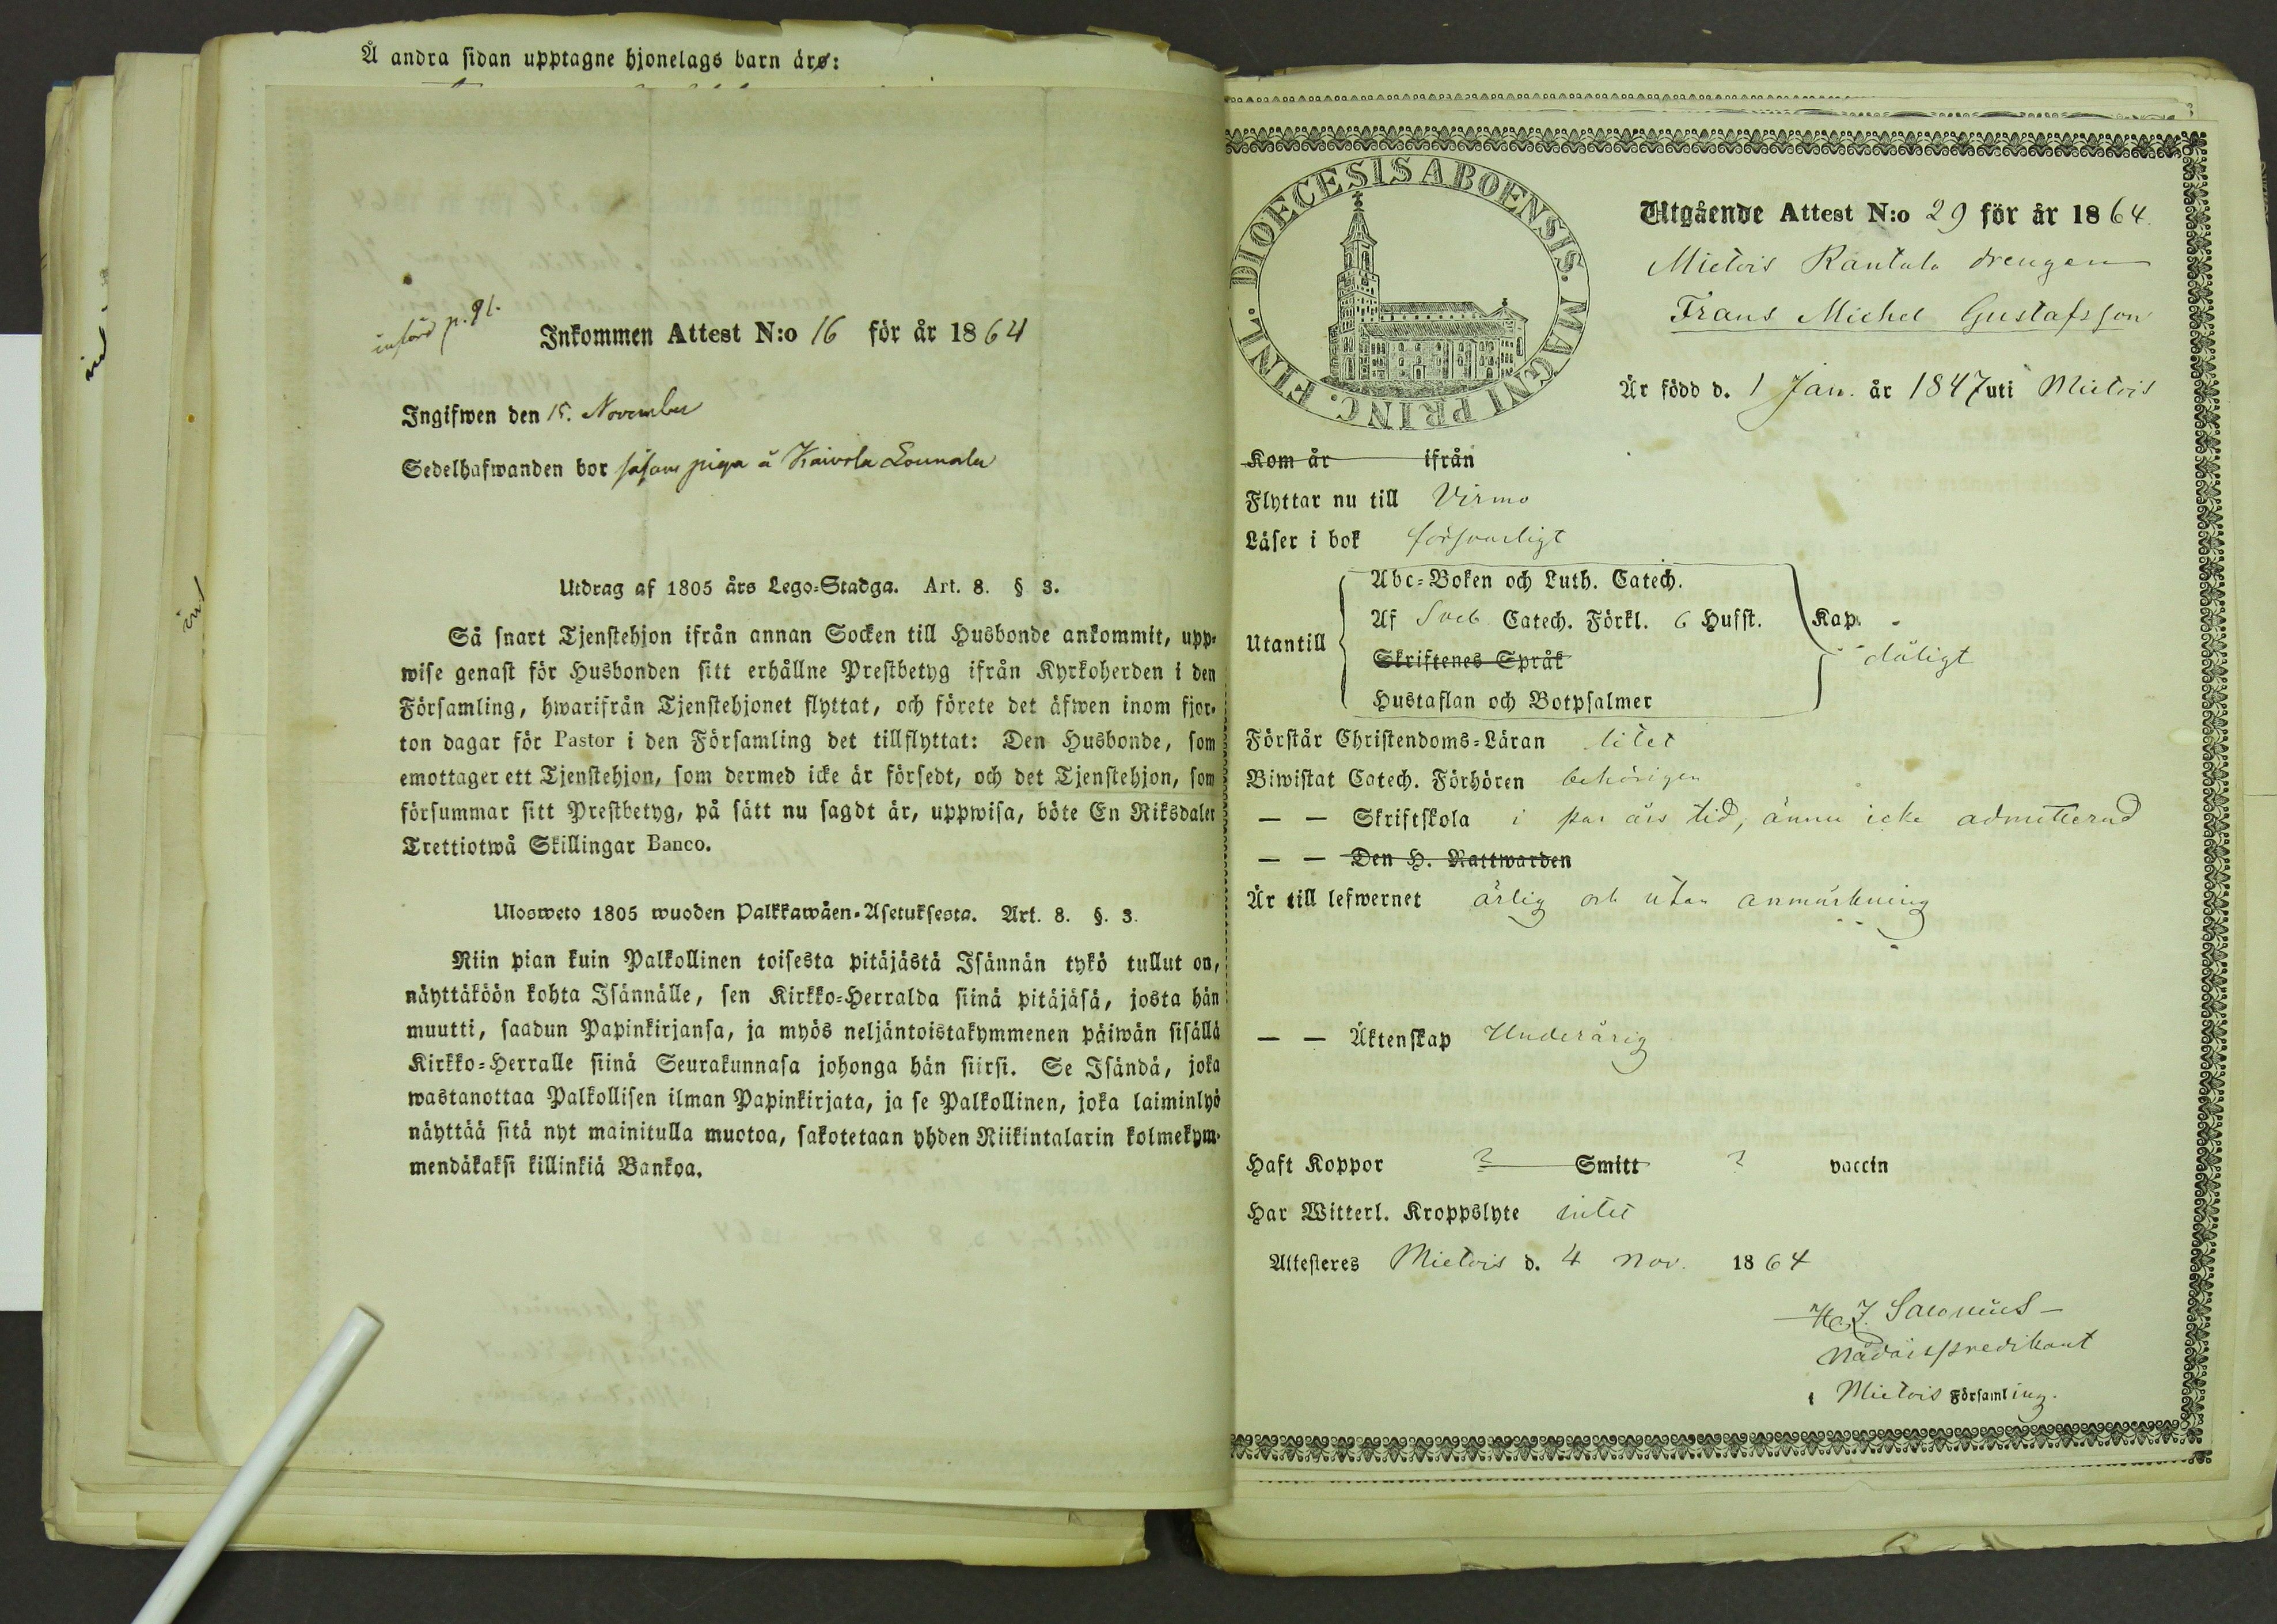 Å andra sidan upptagne hjonelags barn äro:
införd p. 91.
Inkommen Attest N:o 16 för år 1864
Ingifwen den 15. November
Sedelhafwanden bor såsom piga å Kaivola Lounala
Utdrag af 1805 års Lego-Stadga. Art. 8. § 3.
Så snart Tjenstehjon ifrån annan Socken till Husbonde ankommit, upp-
wise genast för Husbonden sitt erhållne Prestbetyg ifrån Kyrkoherden i den
Församling, hwarifrån Tjenstehjonet flyttat, och förete det äfwen inom fjor-
ton dagar för Pastor i den Församling det tillflyttat: Den Husbonde, som
emottager ett Tjenstehjon, som dermed icke är försedt, och det Tjenstehjon, som
försummar sitt Prestbetyg, på sätt nu sagdt är, uppwisa, böte En Riksdaler
Trettiotwå Skillingar Banco.
Ulosweto 1805 wuoden Palkkawäen-Asetuksesta. Art. 8. §. 3.
Niin pian kuin Palkollinen toisesta pitäjästä Isännän tykö tullut on,
näyttäköön kohta Isännälle, sen Kirkko-Herralda siinä pitäjäsä, josta hän
muutti, saadun Papinkirjansa, ja myös neljäntoistakymmenen päiwän sisällä
Kirkko-Herralle siinä Seurakunnasa johonga hän siirsi. Se Isändä, joka
wastanottaa Palkollisen ilman Papinkirjata, ja se Palkollinen, joka laiminlyö
näyttää sitä nyt mainitulla muotoa, sakotetaan yhden Riikintalarin kolmekym-
mendäkaksi killinkiä Bankoa.
DIOECESIS ABOENSIS. MAGNI PRINC. FINL.
Utgående Attest N:o 29 för år 1864.
Mietois Rantala drengen
Frans Michel Gustafsson
Är född d. 1 Jan. år 1847 uti Mietois
Kom år ifrån
Flyttar nu till Virmo
Läser i bok försvarligt
Abc-Boken och Luth. Catech.
Af Sveb. Catech. Förkl. 6 Hufst. Kap.
Utantill
Skriftenes Språk
dåligt
Hustaflan och Botpsalmer
Förstår Christendoms-Läran litet
Biwistat Catech. Förhören behörigen
— — Skriftskola i par års tid, ännu icke admitterad
— — Den H. Nattwarden
Är till lefwernet ärlig och utan anmärkning
— — Äktenskap Underårig
Haft Koppor ? Smitt ? vaccin
Har Witterl. Kroppslyte intet
Attesteres Mietois d. 4 Nov. 1864
Nådårspredikant
i Mietois Församling.